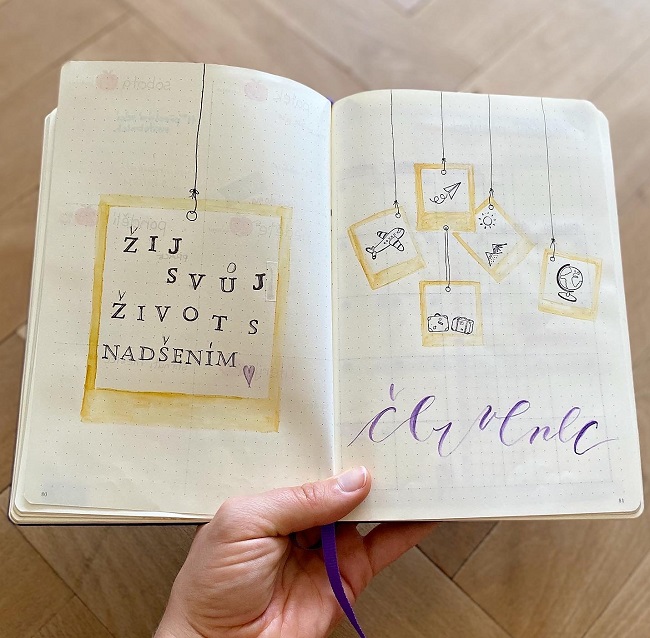 ŽIJ
SVŮJ
ŽIVOT S
NADŠENÍM
červenec
80
81